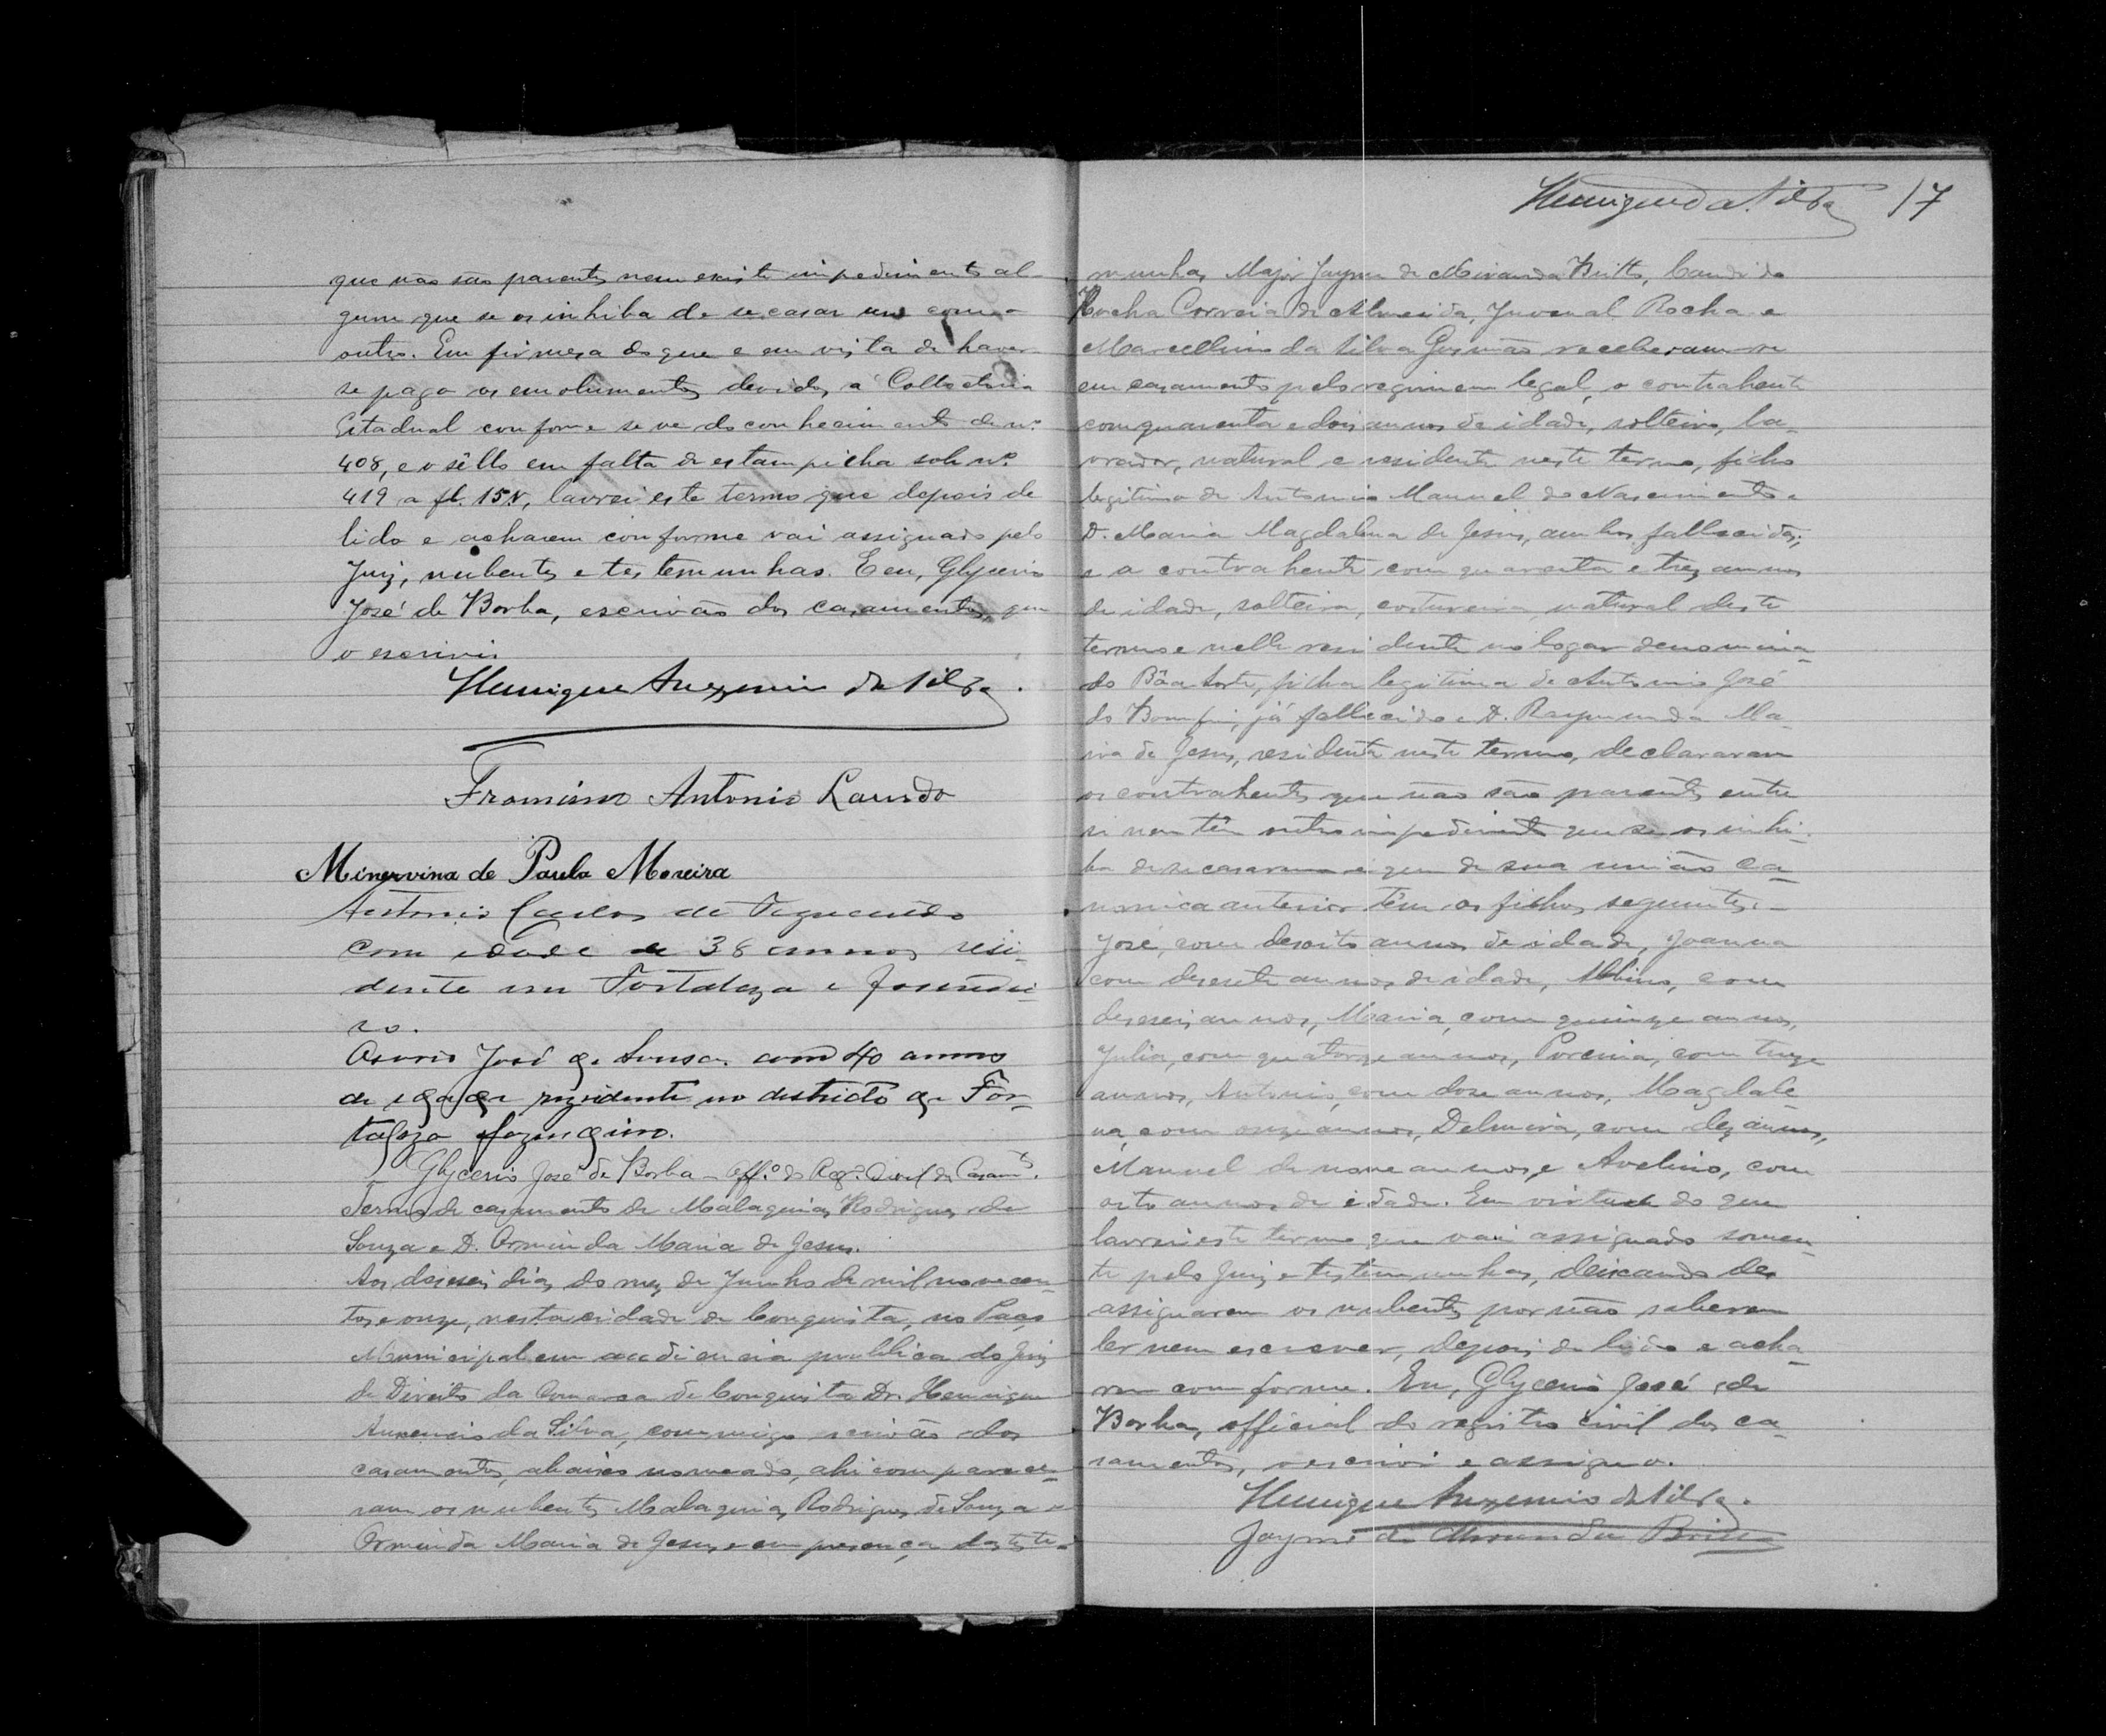 que não são parentes nem existe impedimento al-
gum que se os inhiba de se casar um com o
outro. Em firmesa do que e em vista de haver-
se pago os emolumentos devidos á Collectoria
Estadual conforme se ve do conhecimento de nº
408, e o sêllo em falta de estampilha sob nº
419 a fl. 15v, lavrei este termo que depois de
lido e acharem conforme vai assignado pelo
Juiz, nubentes e testemunhas. E eu, Glycerio
José de Borba, escrivão dos casamentos, que
o escrivi
Henrique Auxencio da Silva.
Antonio Laurdo
Minervina de Paula Moreira
Antonio Carlos de Figueredo
com idade de 38 annos resi-
dente em Fortaleza e fasendei-
ro.
Osorio José de Sousa com 40 annos
de idade rezidente no destricto de For-
taleza fazendeiro.
Glycerio José de Borba - Offº do Regº Civil de Casamtos.
Termo de casamento de Malaquias Rodrigues de
Souza e D. Orminda Maria de Jesus.
Aos deseseis dias do mez de Junho de mil novecen-
tos e onze, nesta cidade de Conquista, no Paço
Municipal em audiencia publica do Juiz
de Direito da Comarca de Conquista Dr. Henrique
Auxencio da Silva, commigo escrivão dos
casamentos, abaixo nomeado, ahi comparece-
ram os nubentes Malaquias Rodrigues de Souza e
Orminda Maria de Jesus, e em presença das teste-
Henrique da Silva 17
munhas Major Jayme de Miranda Britto, Candido
Rocha Correia de Almeida, Juvenal Rocha e
Marcellino da Silva Gusmão receberam-se
em casamento pelo regimem legal, o contrahente
com quarenta e dois annos de idade, solteiro, la-
vrador, natural e residente neste termo, filho
legitimo de Antonio Manuel do Nascimento e
D. Maria Magdalena de Jesus, ambos fallecidos;
e a contrahente com quarenta e trez annos
de idade, solteira, costureira, natural deste
termo e nelle residente no logar denomina-
do Bôa Sorte, filha legitima de Antonio José
do Bomfim, já fallecido e D. Raymunda Ma-
ria de Jesus, residente neste termo, declararam
os contrahentes que não são parentes entre
si nem têm outro impedimento que se os inhi-
ba de se casarem e que de sua união ca-
nonica anterior têm os filhos seguintes: -
José, com desoito annos de idade, Joanna
com desesete annos de idade, Albino, com
deseseis annos, Maria, com quinze annos,
Julia, com quatorze annos, Porcina, com treze
annos, Antonio, com dose annos, Magdale-
na, com onze annos, Delmira, com dez annos,
Manuel de nove annos, e Avelino, com
oito annos de idade. Em virtude do que
lavrei este termo que vai assignado somen-
te pelo Juiz e testemunhas, deixando de
assignarem os nubentes por não saberem
ler nem escrever, depois de lido e acha-
rem conforme. Eu, Glycerio José de
Borba, official do registro civil dos ca-
samentos, o escrivi e assigno.
Henrique Auxencio da Silva.
Jayme de Miranda Britto